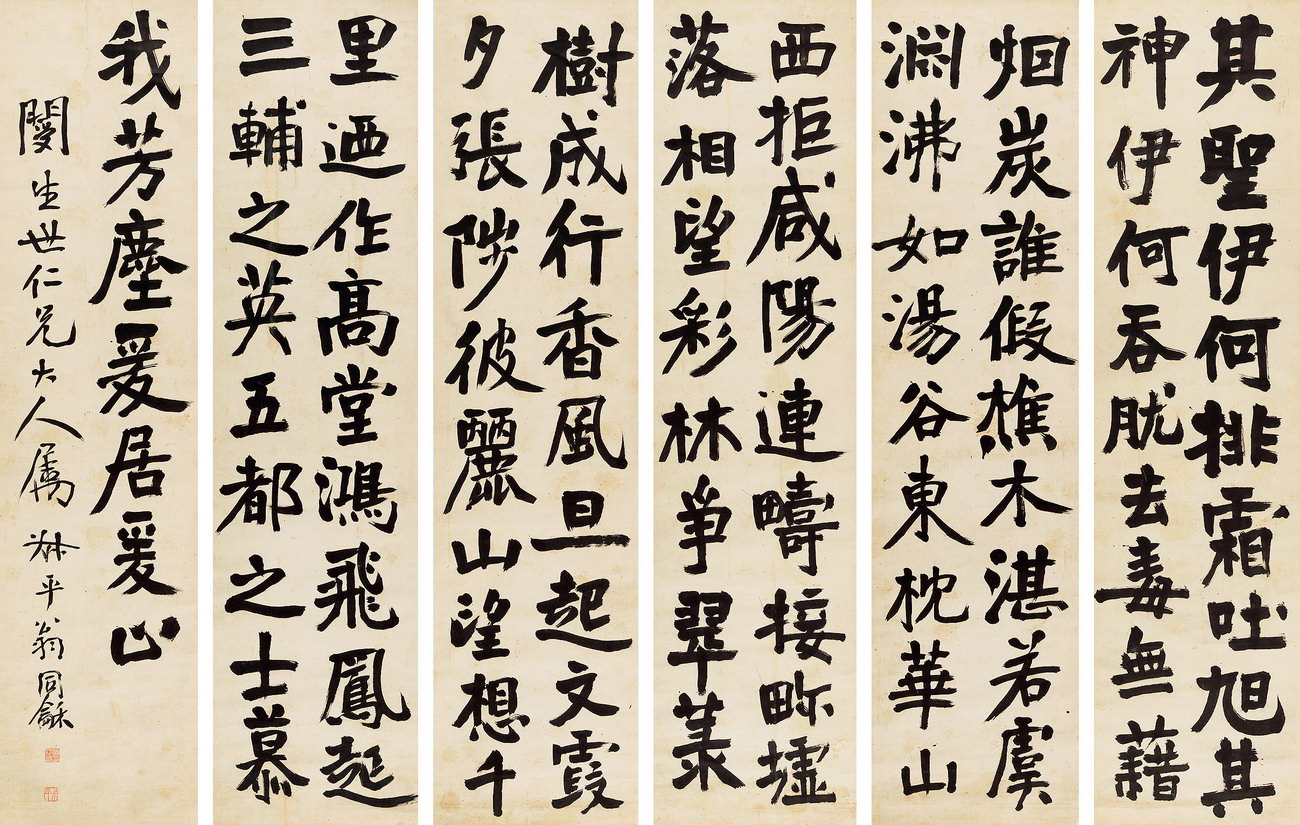 其聖伊何排霜吐旭其
神伊何吞肬去毒無藉
烟炭誰假樵木湛若虞
淵沸如湯谷東枕華山
西拒咸陽連疇接畛墟
落相望彩林爭翠葉
樹成行香風旦起文霞
夕張陟彼麗山望想千
里迺作高堂鴻飛鳳起
三輔之英五都之士慕
我芳塵爰居爰止
閿生世仁兄大人屬 叔平翁同龢